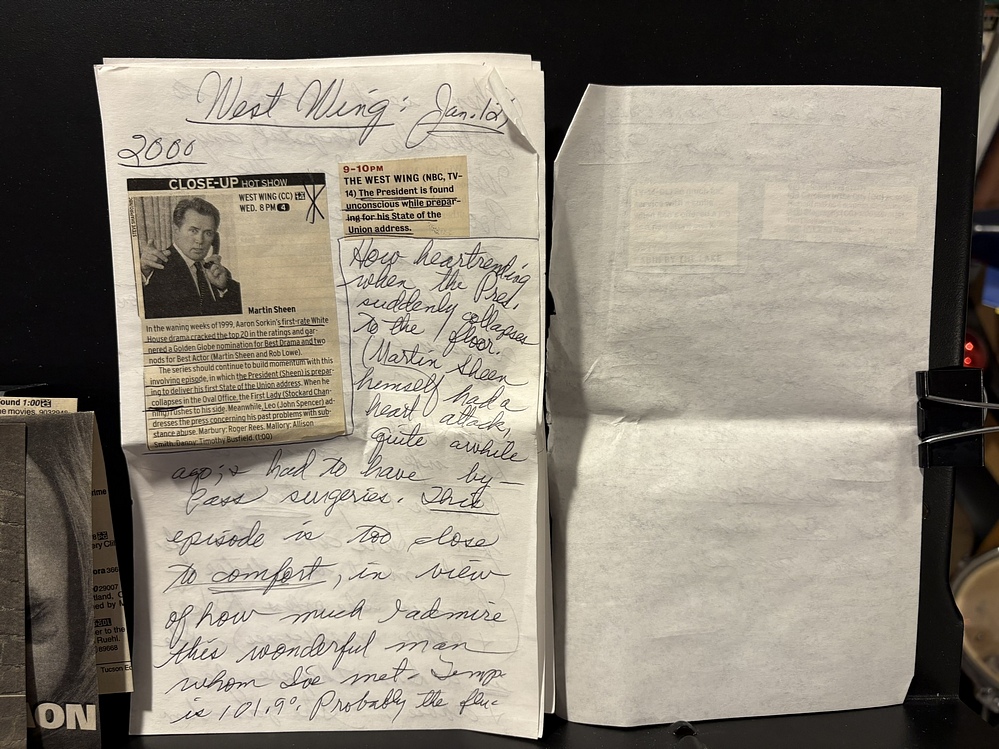 West Wing: Jan. 12,
2000
CLOSE-UP HOT SHOW
WEST WING (CC)
WED. 8 PM 4
Martin Sheen
In the waning weeks of 1999, Aaron Sorkin's first-rate White
House drama cracked the top 20 in the ratings and gar-
nered a Golden Globe nomination for Best Drama and two
nods for Best Actor (Martin Sheen and Rob Lowe).
The series should continue to build momentum with this
involving episode, in which the President (Sheen) is prepar-
ing to deliver his first State of the Union address. When he
collapses in the Oval Office, the First Lady (Stockard Chan-
ning) rushes to his side. Meanwhile, Leo (John Spencer) ad-
dresses the press concerning his past problems with sub-
stance abuse. Marbury: Roger Rees. Mallory: Allison
Smith. Danny: Timothy Busfield. (1:00)
9-10PM
THE WEST WING (NBC, TV-
14) The President is found
unconscious while prepar-
ing for his State of the
Union address.
How heartrending
when the Pres.
suddenly collapses
to the floor.
(Martin Sheen
himself had a
heart attack,
quite awhile
ago; & had to have by-
pass surgeries. This
episode is too close
to comfort, in view
of how much I admire
this wonderful man
whom I've met. Temp
is 101.9°. Probably the flu-
ound 1:00
he movies.
ery Cli
ora
29007
tland, C
ed by M
er to the
Ruehl.
89668
Tucson Ed
ON